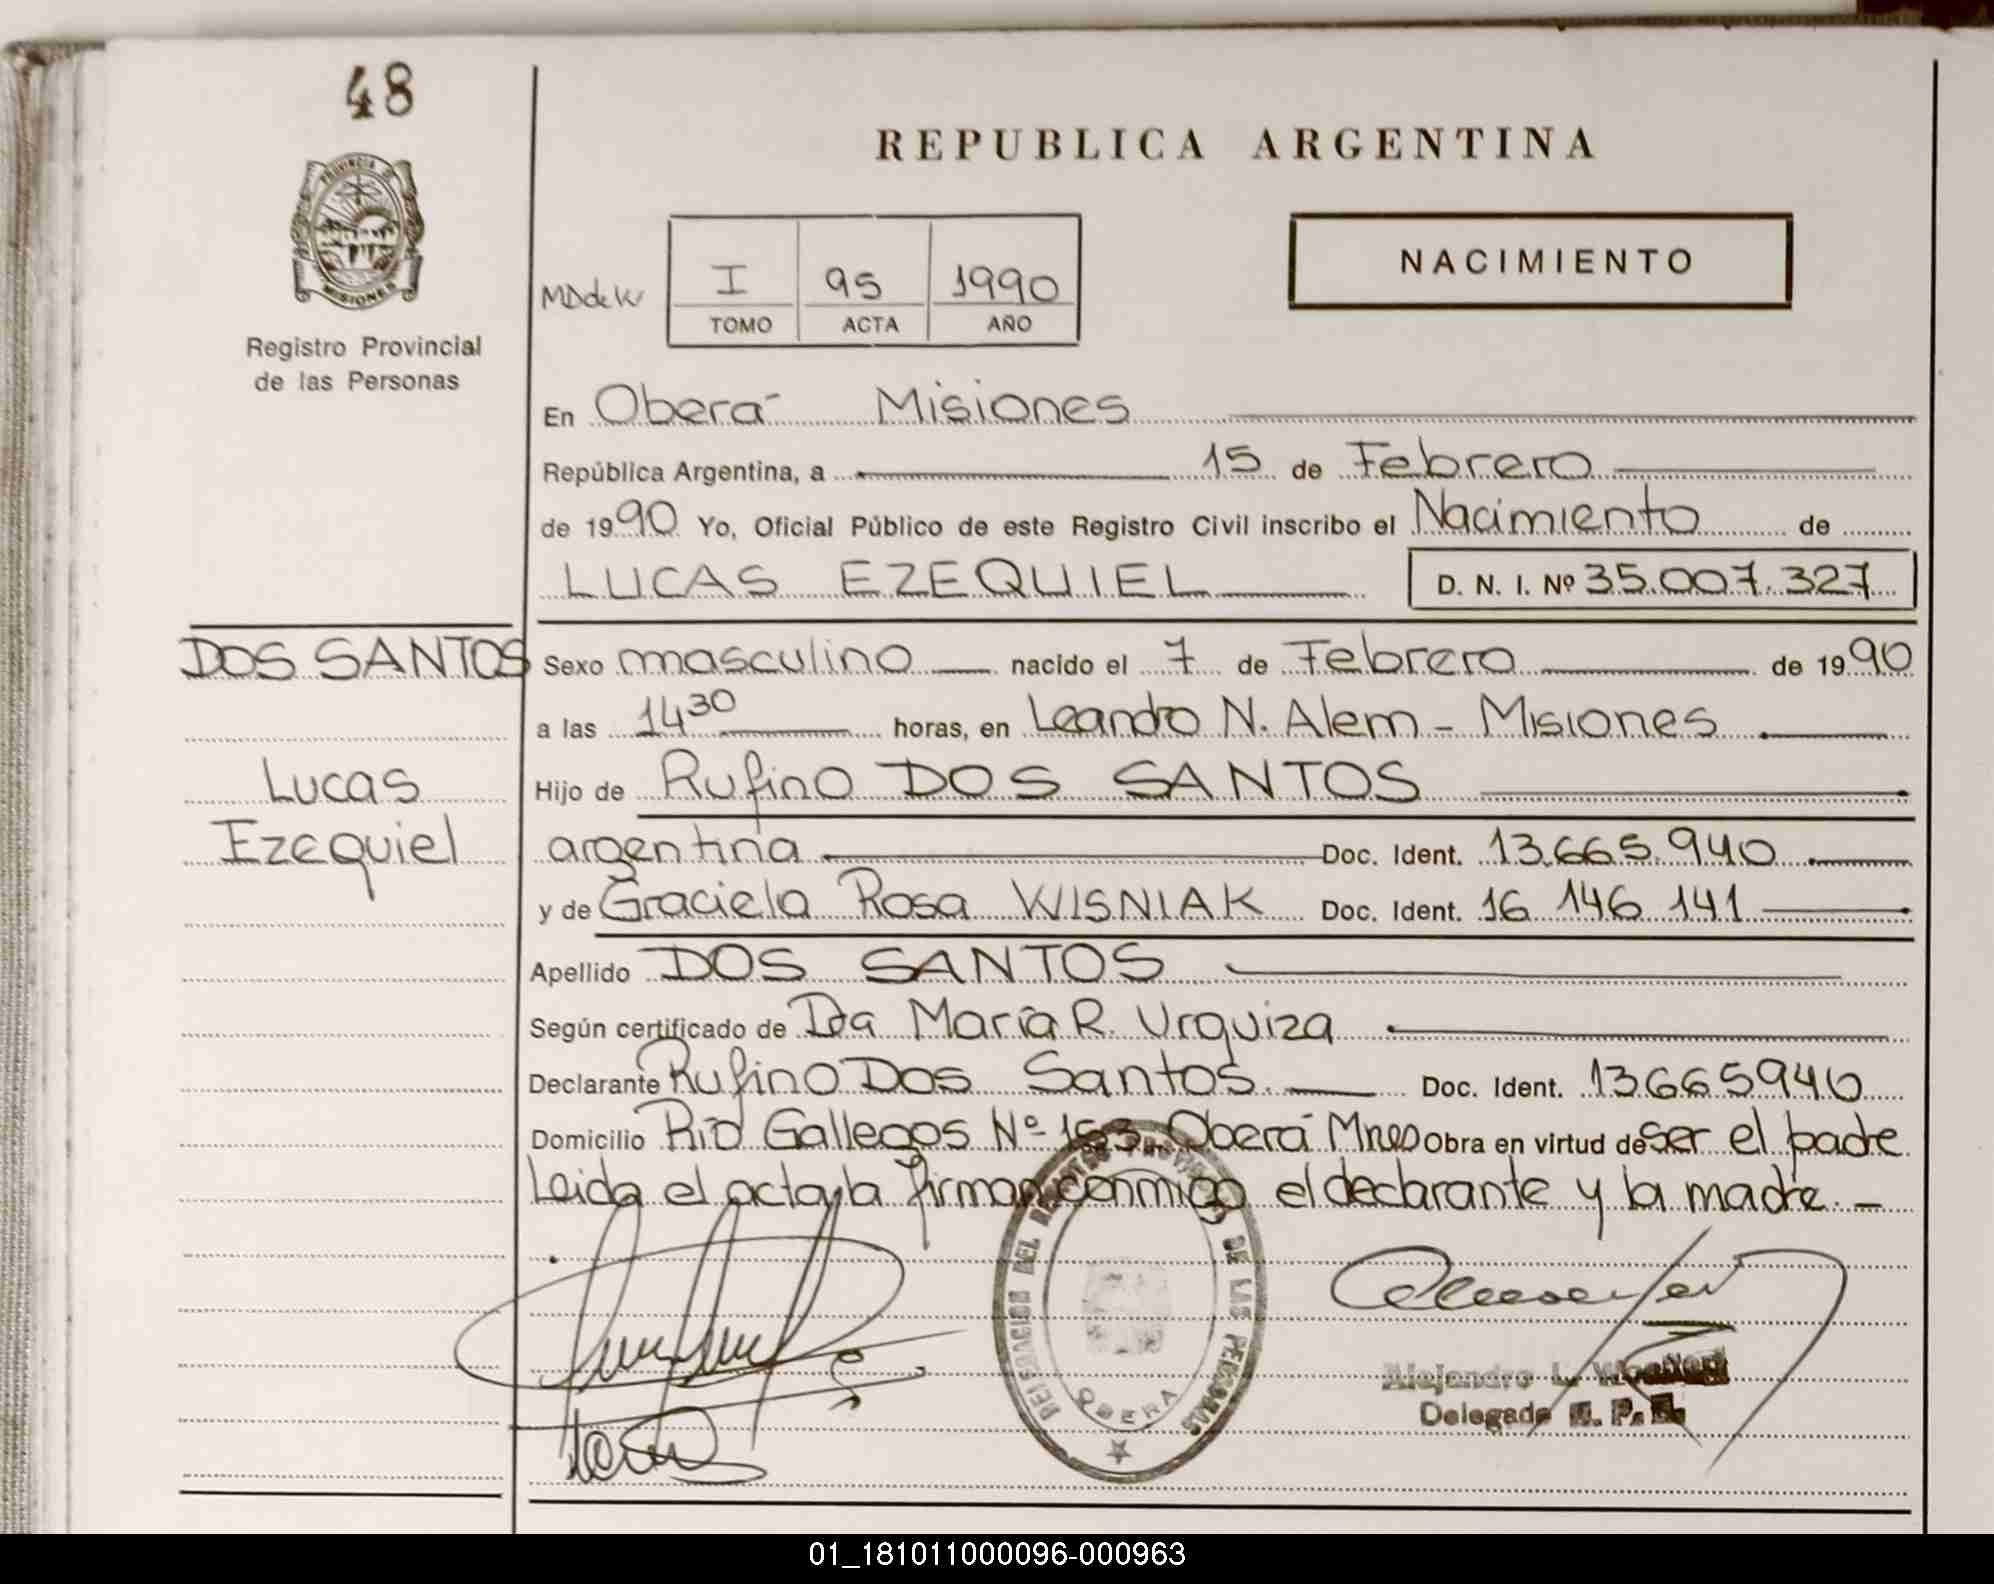 48
PROVINCIA DE
MISIONES
Registro Provincial
de las Personas
REPUBLICA ARGENTINA
NACIMIENTO
MDdeW
I 95 1990
TOMO ACTA AÑO
En Oberá Misiones
República Argentina, a 15 de Febrero
de 1990 Yo, Oficial Público de este Registro Civil inscribo el Nacimiento de
LUCAS EZEQUIEL D. N. I. Nº 35.007.327
DOS SANTOS
Lucas
Ezequiel
Sexo masculino nacido el 7 de Febrero de 1990
a las 14 30 horas, en Leandro N. Alem - Misiones
Hijo de Rufino DOS SANTOS
argentina Doc. Ident. 13.665.940
y de Graciela Rosa WISNIAK Doc. Ident. 16 146 141
Apellido DOS SANTOS
Según certificado de Dra María R. Urquiza
Declarante Rufino Dos Santos. Doc. Ident. 13665940
Domicilio Rio Gallegos Nº Oberá Mnes Obra en virtud de ser el padre
Leida el acta, la firman conmigo el declarante y la madre. -
DELEGACION DEL REGISTRO PROVINCIAL DE LAS PERSONAS
OBERA
Alejandro L.
Delegado R. P. P.
01_181011000096-000963